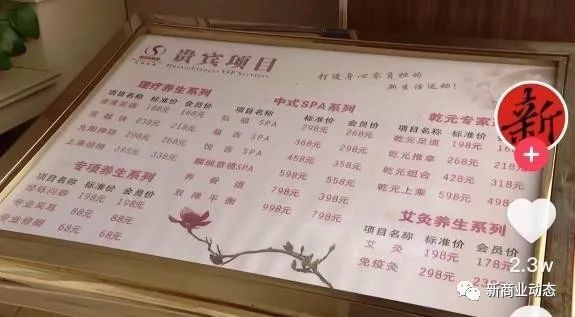 贵宾项目
Huaxialiangzi VIP Services
打造身心零负担的
新生活运动!
理疗养生系列
项目名称 标准价 会员价
168元
238元 218元
298元 268元
398元 338元
专项养生系列
项目名称 标准价 会员价
198元 198元
专业采耳 88元 88元
专业修脚 68元 68元
中式SPA系列
项目名称 标准价 会员价
SPA 298元 268元
SPA 368元 298元
SPA 458元 358元
SPA 558元 558元
养骨道 798元 598元
双禅平衡 998元 798元
乾元专家
项目名称 标准价
乾元足道 198元
乾元推拿 268元 218
乾元组合 428元 318元
乾元上乘 598元 498
艾灸养生系列
项目名称 标准价 会员价
艾灸 198元 178元
免疫灸 298元
新
2.3w
新商业动态